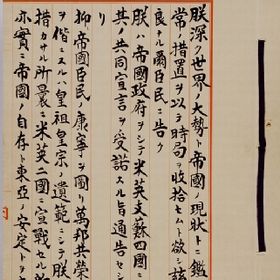 朕深ク世界ノ大勢ト帝國ノ現状トニ鑑
常ノ措置ヲ以テ時局ヲ收拾セムト欲シ茲
良ナル爾臣民ニ告ク
朕ハ帝國政府ヲシテ米英支蘇四國ニ
其ノ共同宣言ヲ受諾スル旨通告セシ
リ
抑帝國臣民ノ康寧ヲ圖リ萬邦共榮
ヲ偕ニスルハ皇祖皇宗ノ遺範ニシテ朕
措カサル所曩ニ米英二國ニ宣戰セル
亦實ニ帝國ノ自存ト東亞ノ安定トヲ